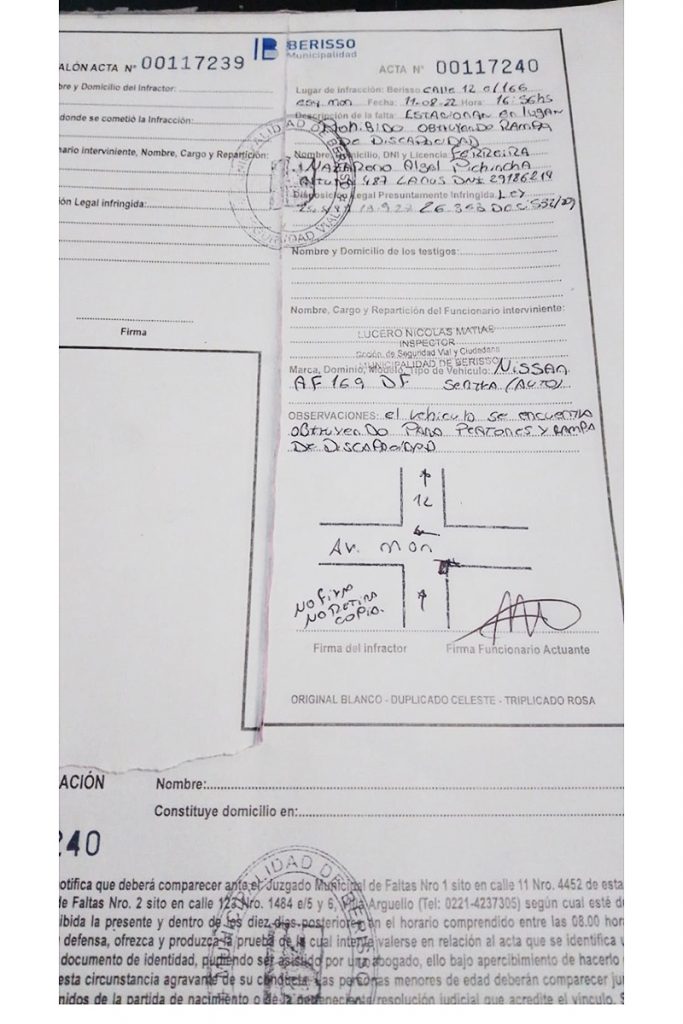 BERISSO
Municipalidad
ALÓN ACTA N° 00117239
ACTA N° 00117240
bre y Domicilio del Infractor:
donde se cometió la Infracción:
nario interviniente, Nombre, Cargo y Repartición:
ión Legal infringida:
Firma
Lugar de infracción: Berisso calle 12 e/166
esq mon Fecha: 11.08.22 Hora: 16:56hs
Descripción de la falta: Estacionar en lugar
Prohibido obstruyendo Rampa
de Discapacidad
Nombre, Domicilio, DNI y Licencia Ferreira
Nazareno Pichincha
Altura 487 Lanus DNI 29186214
Disposición Legal Presuntamente Infringida Ley
26.363 Dec: 532/09
Nombre y Domicilio de los testigos:
Nombre, Cargo y Repartición del Funcionario interviniente:
LUCERO NICOLAS MATIAS
INSPECTOR
de Seguridad Vial y Ciudadana
MUNICIPALIDAD DE BERISSO
Marca, Dominio, Modelo, Tipo de Vehículo: Nissan
AF 169 DF Sentra (Auto)
OBSERVACIONES: el vehiculo se encuentra
obtruyendo para peatones y rampa
de Discapacidad
12
Av. mon
No firma
No Retira
copia.
Firma del infractor
Firma Funcionario Actuante
ORIGINAL BLANCO - DUPLICADO CELESTE - TRIPLICADO ROSA
MUNICIPALIDAD DE BERISSO
SEGURIDAD VIAL
ACIÓN
Nombre:
Constituye domicilio en:
240
MUNICIPALIDAD DE BERISSO
otifica que deberá comparecer ante el Juzgado Municipal de Faltas Nro 1 sito en calle 11 Nro. 4452 de esta
de Faltas Nro. 2 sito en calle 123 Nro. 1484 e/5 y 6, Villa Arguello (Tel: 0221-4237305) según cual esté d
ibida la presente y dentro de los diez días posteriores en el horario comprendido entre las 08.00 hor
defensa, ofrezca y produzca la prueba de la cual intente valerse en relación al acta que se identifica
documento de identidad, pudiendo ser asistido por un abogado, ello bajo apercibimiento de hacerlo
esta circunstancia agravante de su conducta. Las personas menores de edad deberán comparecer ju
nidos de la partida de nacimiento o de la pertinente resolución judicial que acredite el vínculo. S